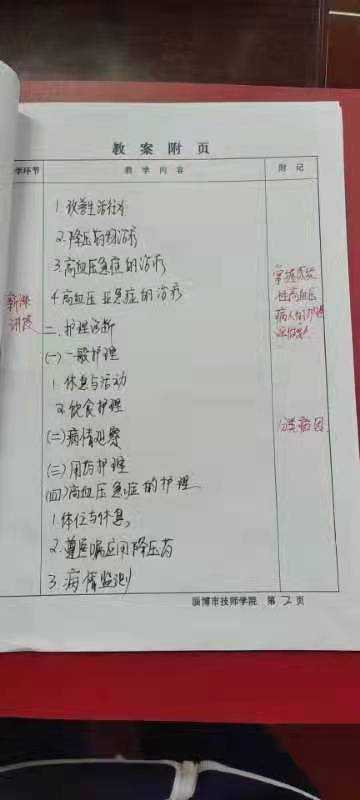 教案附页
学环节 教学内容 附记
1.改善生活行为
2.降压药物治疗
3.高血压急症的治疗
4.高血压亚急症的治疗
新课
讲授
二、护理诊断
(一)一般护理
1.休息与活动
2.饮食护理
(二)病情观察
(三)用药护理
(四)高血压急症的护理
1.体位与休息
2.遵医嘱应用降压药
3.病情监测
性高血压
病人的护理
淄博市技师学院 第2页